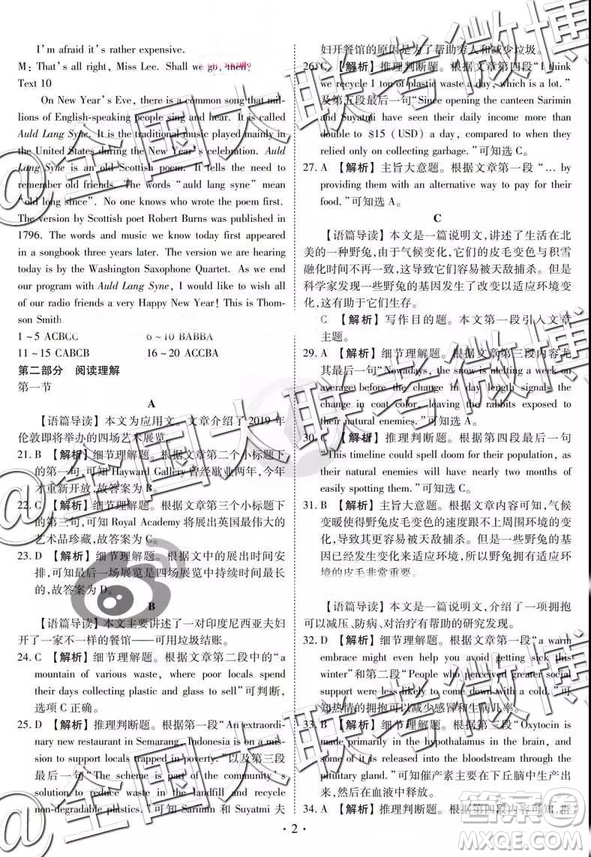 I'm afraid it's rather expensive.
M: That's all right, Miss Lee. Shall we go, then?
Text 10
On New Year's Eve, there is a common song that mil-
lions of English-speaking people sing and hear. It is called
Auld Lang Syne. It is the traditional music played in
the United States during the New Year's celebration. Auld
Lang Syne is an old Scottish poem. It tells the need to
remember old friends. The words "auld lang syne" mean
"old long since". No one knows who wrote the poem first.
The version by Scottish poet Robert Burns was published in
1796. The words and music we know today first appeared
in a songbook three years later. The version we are hearing
today is by the Washington Saxophone Quartet. As we end
our program with Auld Lang Syne, I would wish all
of our radio friends a very Happy New Year! This is Thom-
son Smith.
1~5 ACBCC 6~10 BABBA
11~15 CABCB 16~20 ACCBA
第二部分 阅读理解
第一节
A
【语篇导读】本文为应用文。文章介绍了2019年
伦敦即将举办的四场艺术展览。
21. B 【解析】细节理解题。根据文章第二个小标题下
的第一句,可知 Hayward Gallery 曾经歇业两年,今年
才重新开放,故答案为B。
22. C 【解析】细节理解题。根据文章第三个小标题下
的第三句,可知 Royal Academy 将展出英国最伟大的
艺术品珍藏,故答案为C。
23. D 【解析】细节理解题。根据文中的展出时间安
排,可知最后一场展览是四场展览中持续时间最长
的,故答案为D。
B
【语篇导读】本文主要讲述了一对印度尼西亚夫妇
开了一家不一样的餐馆——可用垃圾结账。
24. C 【解析】细节理解题。根据文章第二段中的"a
mountain of various waste, where poor locals would
spend their days collecting plastic and glass to sell"可判断,
选项C正确。
25. D 【解析】推理判断题。根据第一段"An extraordi-
nary new restaurant in Semarang, Indonesia is on a mission
to reduce waste and end food poverty."以及第三段
最后一句"The scheme is part of the community's
solution to reduce waste in the landfill and recycle
non-degradable plastics."可知 Sarimin 和 Suyatmi 夫
妇开餐馆的原因是为了帮助穷人和减少垃圾。
26. C 【解析】推理判断题。根据文章第四段"I think
we recycle 1 ton of plastic waste a day, which is a lot."
及第五段最后一句"Since opening the canteen Sarimin
and Suyatmi have seen their daily income more than
double to $15 (USD) a day, compared to when they
relied only on collecting garbage."可知选C。
27. A 【解析】主旨大意题。根据文章第一段"… by
providing them with an alternative way to pay for their
food."可知选A。
C
【语篇导读】本文是一篇说明文,讲述了生活在北
美的一种野兔,由于气候变化,它们的皮毛变色与积雪
融化时间不再一致,这导致它们容易被天敌捕杀。但是
科学家发现一些野兔的基因发生了改变以适应环境变
化,这有助于它们生存。
C 【解析】写作目的题。根据第一段引入文章
主题。
29. A 【解析】细节理解题。根据文章第三段内容
"Nowadays, the snow is melting much earlier on
average before the snowshoe hares have made their
change in coat color, leaving them exposed."可知
选A。
30. 【解析】推理判断题。根据第四段的最后一句
"This timeline could spell doom for their population, as
their natural enemies will have nearly two months of
easily spotting them."可知选
31. 【解析】推理判断题。根据文章最后一段,气候
变暖使得野兔皮毛变色的速度跟不上周围环境的变
化,导致其难以适应环境,而一些野兔皮毛变色的基
因已经发生改变以适应环境,这说明适应环境变化的
皮毛非常重要。
【语篇导读】本文是一篇说明文,介绍了一项拥抱可
以减压、防病、对治疗有帮助的研究发现。
32. D 【解析】细节理解题。根据文章第一段的"a warm
embrace might even help you avoid getting sick" 及
"People who received greater social
support were less likely to come down with a cold"可
知热情的拥抱可以减少感冒和生病几率。
33. B 【解析】细节理解题。根据文章第三段"Oxytocin is
made primarily in the hypothalamus in the brain. Some of
it gets released into the bloodstream through the
pituitary gland."可知催产素主要在下丘脑中产生然后
释放到血液中。
34. A 【解析】推理判断题。根据第四段内容可知,
· 2 ·
@全国大联考微博
答案圈
MXQE.COM